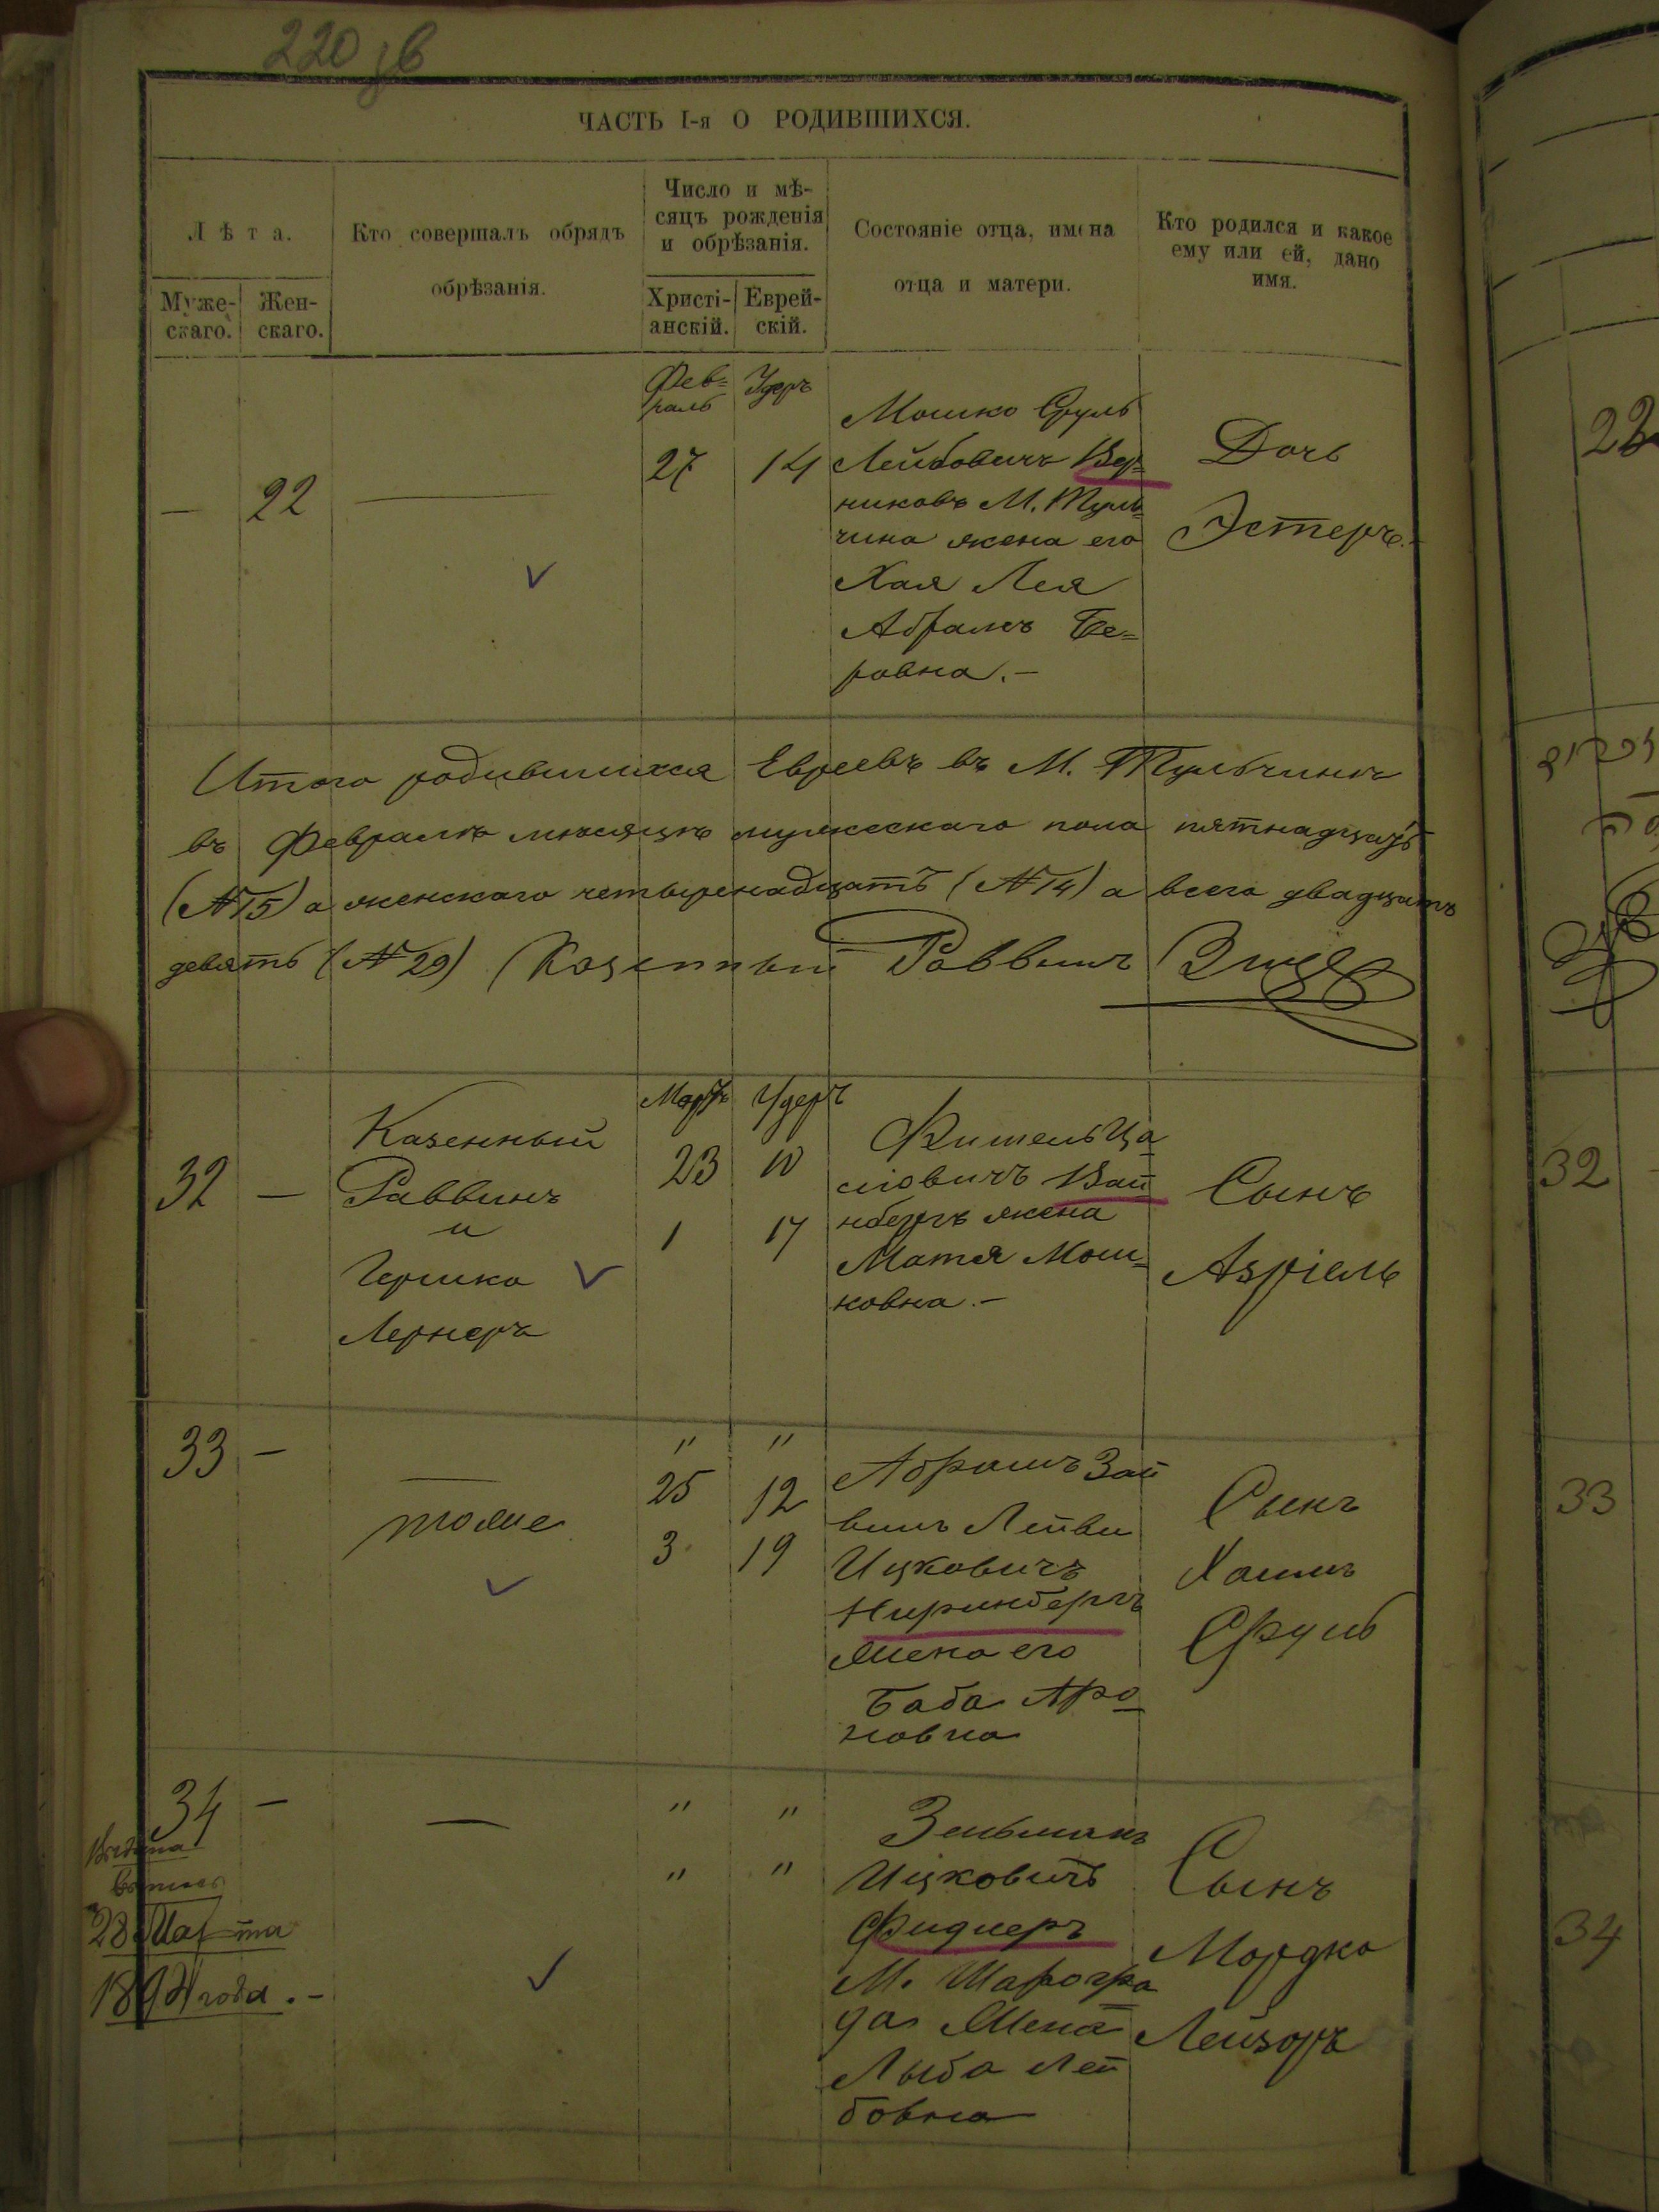 220 зв
ЧАСТЬ I-я О РОДИВШИХСЯ.
Лѣта.
Муже-
скаго.
Жен-
скаго.
Кто совершалъ обрядъ
обрѣзанія.
Число и мѣ-
сяцъ рожденія
и обрѣзанія.
Христі-
анскій.
Еврей-
скій.
Состояніе отца, имена
отца и матери.
Кто родился и какое
ему или ей, дано
имя.
— 22 —
Фев=
раль
27
Удеръ
14
Мошко Сруль
Лейбовичъ Вер=
никовъ М. Туль=
чина жена его
Хая Лея
Абрамъ Бе=
ровна.—
Дочь
Эстеръ.—
Итого родившихся Евреевъ въ М. Тульчинѣ
въ Февралѣ мѣсяцѣ мужескаго пола пятнадцать
(№15) а женскаго четыренадцать (№14) а всего двадцать
девять (№29) Казенный Раввинъ
32 —
Казенный
Раввинъ
и
Гершко
Лернеръ
Мартъ
23
1
Удеръ
10
17
Фишель Ца
Вай
нбергъ жена
Матя Мош=
ковна.—
Сынъ
Азріель
33 —
—
тоже
"
25
3
"
12
19
Абрамъ Зай
вишъ Лейви
Ицковичъ
Ниринбергъ
Жена его
Баба Аро
новна
Сынъ
Хаимъ
Сруль
34 —
Выдана
выпись
28 Марта
189 года.—
—
" "
" "
Зельманъ
Ицковичъ
Фидлеръ
М. Шарогро
да Жена
Лыба Лей
бовна
Сынъ
Мордко
Лейзоръ
22
32
33
34